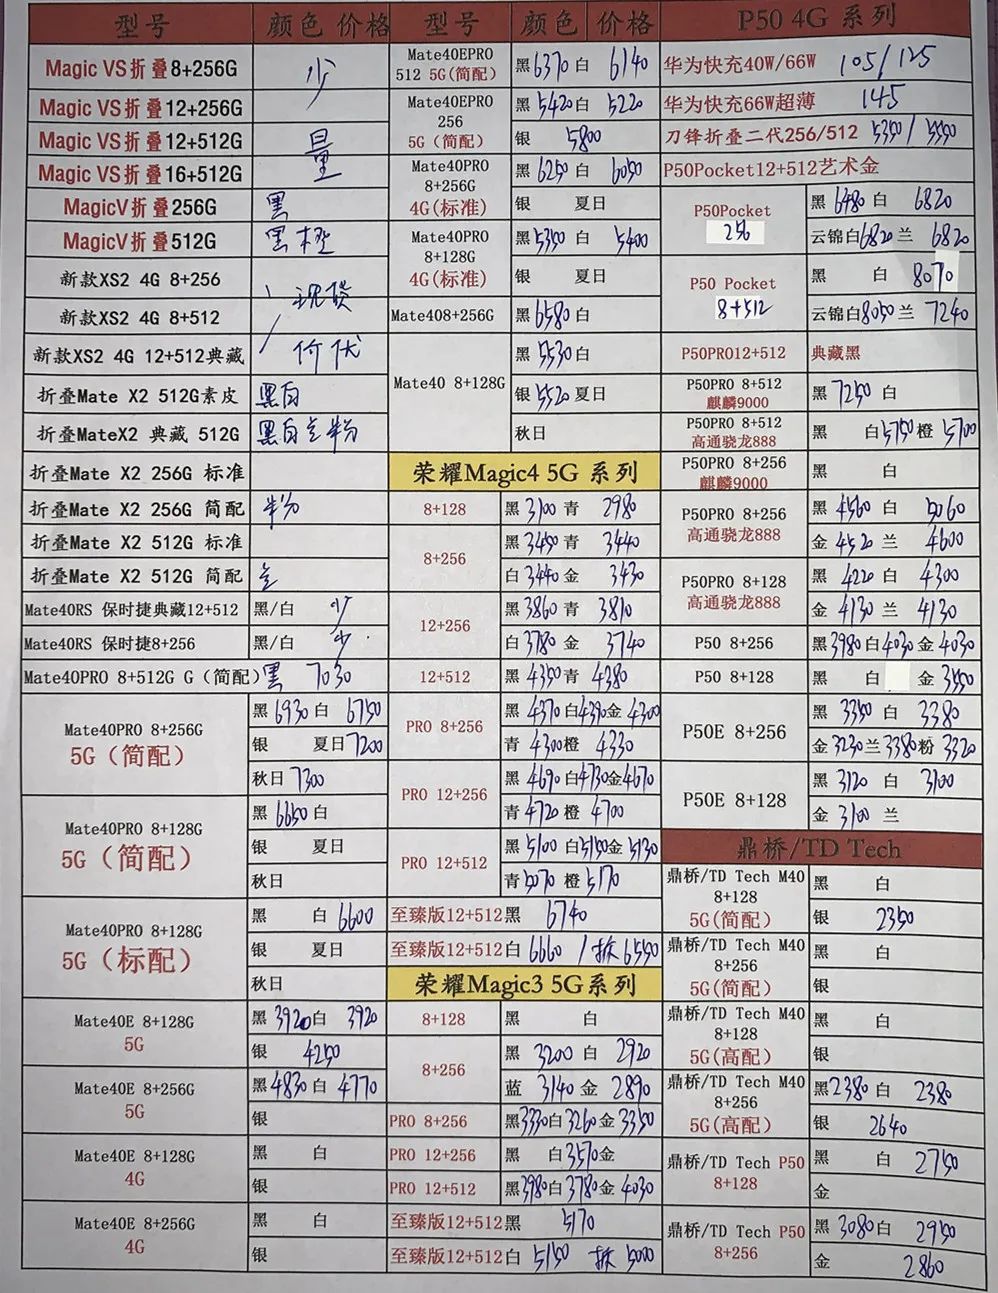 型号 颜色 价格
Magic VS折叠8+256G 少
Magic VS折叠12+256G
Magic VS折叠12+512G 量
Magic VS折叠16+512G
MagicV折叠256G 黑
MagicV折叠512G 黑橙
新款XS2 4G 8+256 现货
新款XS2 4G 8+512
新款XS2 4G 12+512典藏 价优
折叠Mate X2 512G素皮 黑白
折叠MateX2 典藏 512G 黑白 粉
折叠Mate X2 256G 标准
折叠Mate X2 256G 简配 粉
折叠Mate X2 512G 标准
折叠Mate X2 512G 简配
Mate40RS 保时捷典藏12+512 黑/白 少
Mate40RS 保时捷8+256 黑/白 少
Mate40PRO 8+512G G（简配） 黑 7030
Mate40PRO 8+256G
5G（简配）
黑 6930 白 6750
银 夏日7200
秋日 7300
Mate40PRO 8+128G
5G（简配）
黑 6650 白
银 夏日
秋日
Mate40PRO 8+128G
5G（标配）
黑 白 6600
银 夏日
秋日
Mate40E 8+128G
5G
黑 3920 白 3920
银 4250
Mate40E 8+256G
5G
黑 4830 白 4770
银
Mate40E 8+128G
4G
黑 白
银
Mate40E 8+256G
4G
黑 白
银
型号 颜色 价格
Mate40EPRO
512 5G(简配)
黑 6370 白 6140
Mate40EPRO
256
5G（简配）
黑 5420 白 5220
银 5800
Mate40PRO
8+256G
4G(标准)
黑 6250 白 6050
银 夏日
Mate40PRO
8+128G
4G(标准)
黑 5350 白 5400
银 夏日
Mate408+256G 黑 6580 白
Mate40 8+128G
黑 5530 白
银 5520 夏日
秋日
荣耀Magic4 5G 系列
8+128 黑 3100 青 2980
8+256
黑 3450 青 3440
白 3440 金 3430
12+256
黑 3860 青 3810
白 3780 金 3740
12+512 黑 4350 青 4380
PRO 8+256
黑 4370 白 4390 金 4300
青 4300 橙 4330
PRO 12+256
黑 4690 白 4730 金 4670
青 4720 橙 4700
PRO 12+512
黑 5100 白 5150 金 5130
青 5070 橙 5170
至臻版12+512黑 6740
至臻版12+512白 6660 / 拆 6550
荣耀Magic3 5G系列
8+128 黑 白
8+256
黑 3200 白 2920
蓝 3140 金 2890
PRO 8+256 黑 3330 白 3260 金 3350
PRO 12+256 黑 白 3570 金
PRO 12+512 黑 3980 白 3780 金 4030
至臻版12+512黑 5170
至臻版12+512白 5150 拆 5000
P50 4G 系列
华为快充40W/66W 105/125
华为快充66W超薄 145
刀锋折叠二代256/512 5350 / 5550
P50Pocket12+512艺术金
P50Pocket
256
黑 6480 白 6820
云锦白 6820 兰 6820
P50 Pocket
8+512
黑 白 8070
云锦白 8050 兰 7240
P50PRO12+512 典藏黑
P50PRO 8+512
麒麟9000
黑 7250 白
P50PRO 8+512
高通骁龙888
黑 白 5750 橙 5700
P50PRO 8+256
麒麟9000
黑 白
P50PRO 8+256
高通骁龙888
黑 4560 白 5060
金 4520 兰 4600
P50PRO 8+128
高通骁龙888
黑 4220 白 4300
金 4130 兰 4130
P50 8+256 黑 3980 白 4030 金 4030
P50 8+128 黑 白 金 3550
P50E 8+256
黑 3350 白 3380
金 3230 兰 3380 粉 3320
P50E 8+128
黑 3120 白 3100
金 3100 兰
鼎桥/TD Tech
鼎桥/TD Tech M40
8+128
5G(简配)
黑 白
银 2350
鼎桥/TD Tech M40
8+256
5G(简配)
黑 白
银
鼎桥/TD Tech M40
8+128
5G(高配)
黑 白
银
鼎桥/TD Tech M40
8+256
5G(高配)
黑 2380 白 2380
银 2640
鼎桥/TD Tech P50
8+128
黑 白 2750
金
鼎桥/TD Tech P50
8+256
黑 3080 白 2950
金 2860